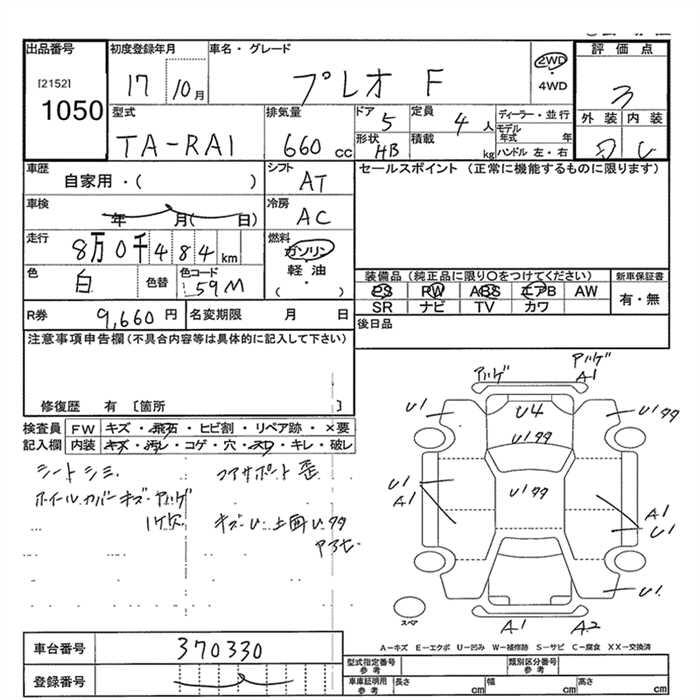 出品番号
[2152]
1050
初度登録年月
17 10月
車名・グレード
プレオ F
2WD
4WD
評価点
3
外装 内装
型式
TA-RA1
排気量
660 cc
ドア
5
定員
4人
形状
HB
積載
kg
ディーラー・並行
モデル年式 年
ハンドル 左・右
車歴
自家用・( )
シフト
AT
セールスポイント (正常に機能するものに限ります)
車検
年 月( 日)
冷房
AC
走行
8万0千484km
燃料
ガソリン
軽油
( )
色
白
色替
色コード
59M
装備品 (純正品に限り○をつけてください)
PS PW ABS エアB AW
SR ナビ TV カワ
新車保証書
有・無
R券
9,660 円
名変期限 月 日
後日品
注意事項申告欄(不具合内容等は具体的に記入して下さい)
修復歴 有 [箇所 ]
検査員記入欄
FW キズ・飛石・ヒビ割・リペア跡・×要
内装 キズ・汚レ・コゲ・穴・スレ・キレ・破レ
シートシミ
コアサポート歪
ホイルカバーキズ・アリゲ
1ケ欠
キズ・U 上面Uタタ
アリゲ
アリゲ
A1
U1
U4
U1タタ
U1タタ
U1
A1
U1タタ
A1
U1
U1
スペア
A1
A2
A-キズ E-エクボ U-凹み W-補修跡 S-サビ C-腐食 XX-交換済
車台番号
370330
登録番号
型式指定番号
参考
類別区分番号
参考
車庫証明用
参考
長さ cm
幅 cm
高さ cm